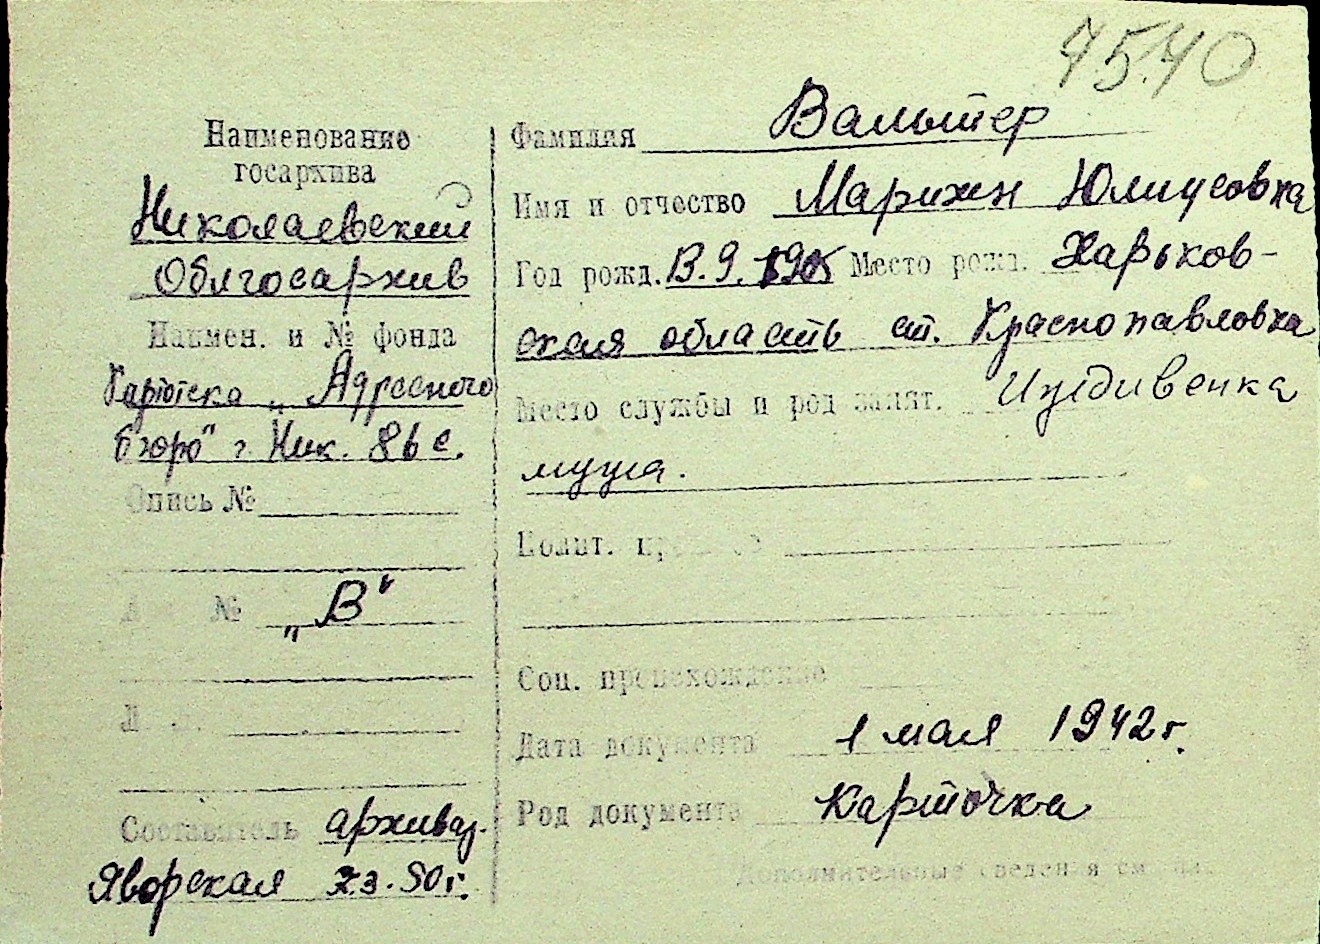 7570
Наименование
госархива
Николаевский
Облгосархив
Наимен. и № фонда
Картотека „Адресного
бюро" г. Ник.
Опись №
№ „В"
Составитель архивар.
Яворская 50г.
Фамилия Вальтер
Имя и отчество Марихен Юлиусовна
Год рожд. Место рожд. Харьков-
ская область ст. Краснопавловка
Место службы и род занят. Иждивенка
мужа.
Полит. 
Соц. происхождение
Дата документа 1 мая 1942г.
Род документа карточка
Дополнительные сведения см. на